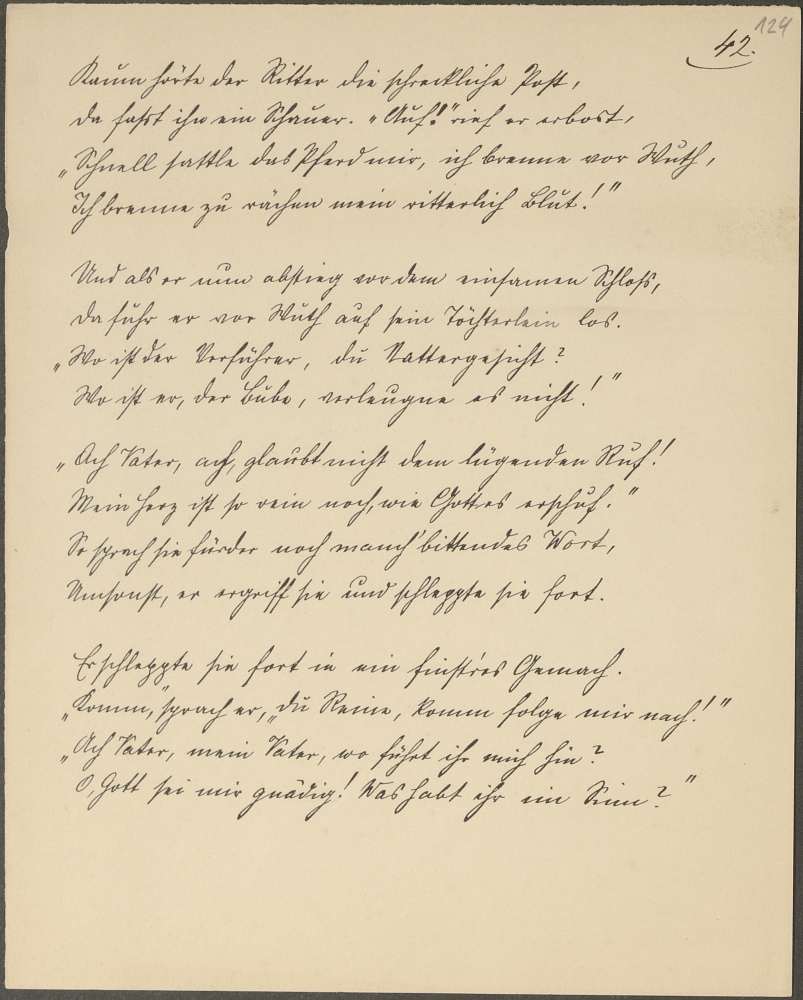 124
42.
Kaum hörte der Ritter die schreckliche Post,
da fasst ihn ein Schauer. „Auf!" rief er erbost,
„Schnell sattle das Pferd mir, ich brenne vor Wuth,
Ich brenne zu rächen mein ritterlich Blut!"
Und als er nun abstieg vor dem einsamen Schloss,
da fuhr er vor Wuth auf sein Töchterlein los.
„Wo ist der Verführer, du Nattergesicht?
Wo ist er, der Bube, verleugne es nicht!"
„Ach Vater, ach, glaubt nicht dem lügenden Ruf!
Mein Herz ist so rein noch, wie Gott es erschuf."
So sprach sie fürder noch manch' bittendes Wort,
Umsonst, er ergriff sie und schleppte sie fort.
Er schleppte sie fort in ein finst'res Gemach.
„Komm," sprach er, „du Reine, komm folge mir nach!"
„Ach Vater, mein Vater, wo führt ihr mich hin?
O, Gott sei mir gnädig! Was habt ihr im Sinn?"